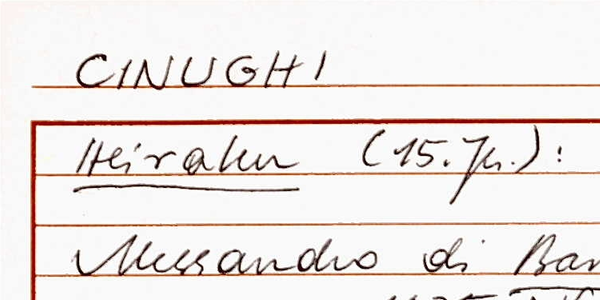 CINUGHI
Heiraten (15. Jh.):
Alessandro di Bar